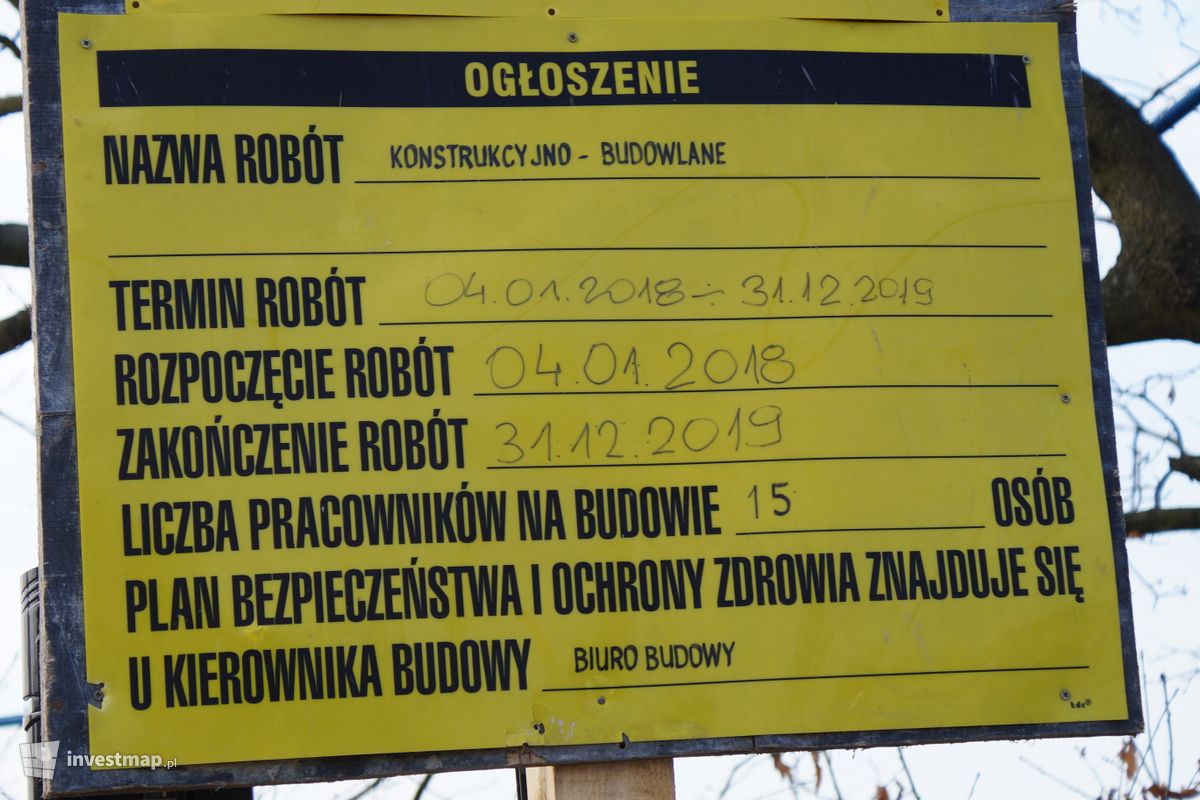 OGŁOSZENIE
NAZWA ROBÓT KONSTRUKCYJNO - BUDOWLANE
TERMIN ROBÓT 04.01.2018 ÷ 31.12.2019
ROZPOCZĘCIE ROBÓT 04.01.2018
ZAKOŃCZENIE ROBÓT 31.12.2019
LICZBA PRACOWNIKÓW NA BUDOWIE 15 OSÓB
PLAN BEZPIECZEŃSTWA I OCHRONY ZDROWIA ZNAJDUJE SIĘ
U KIEROWNIKA BUDOWY BIURO BUDOWY
tdc®
investmap.pl